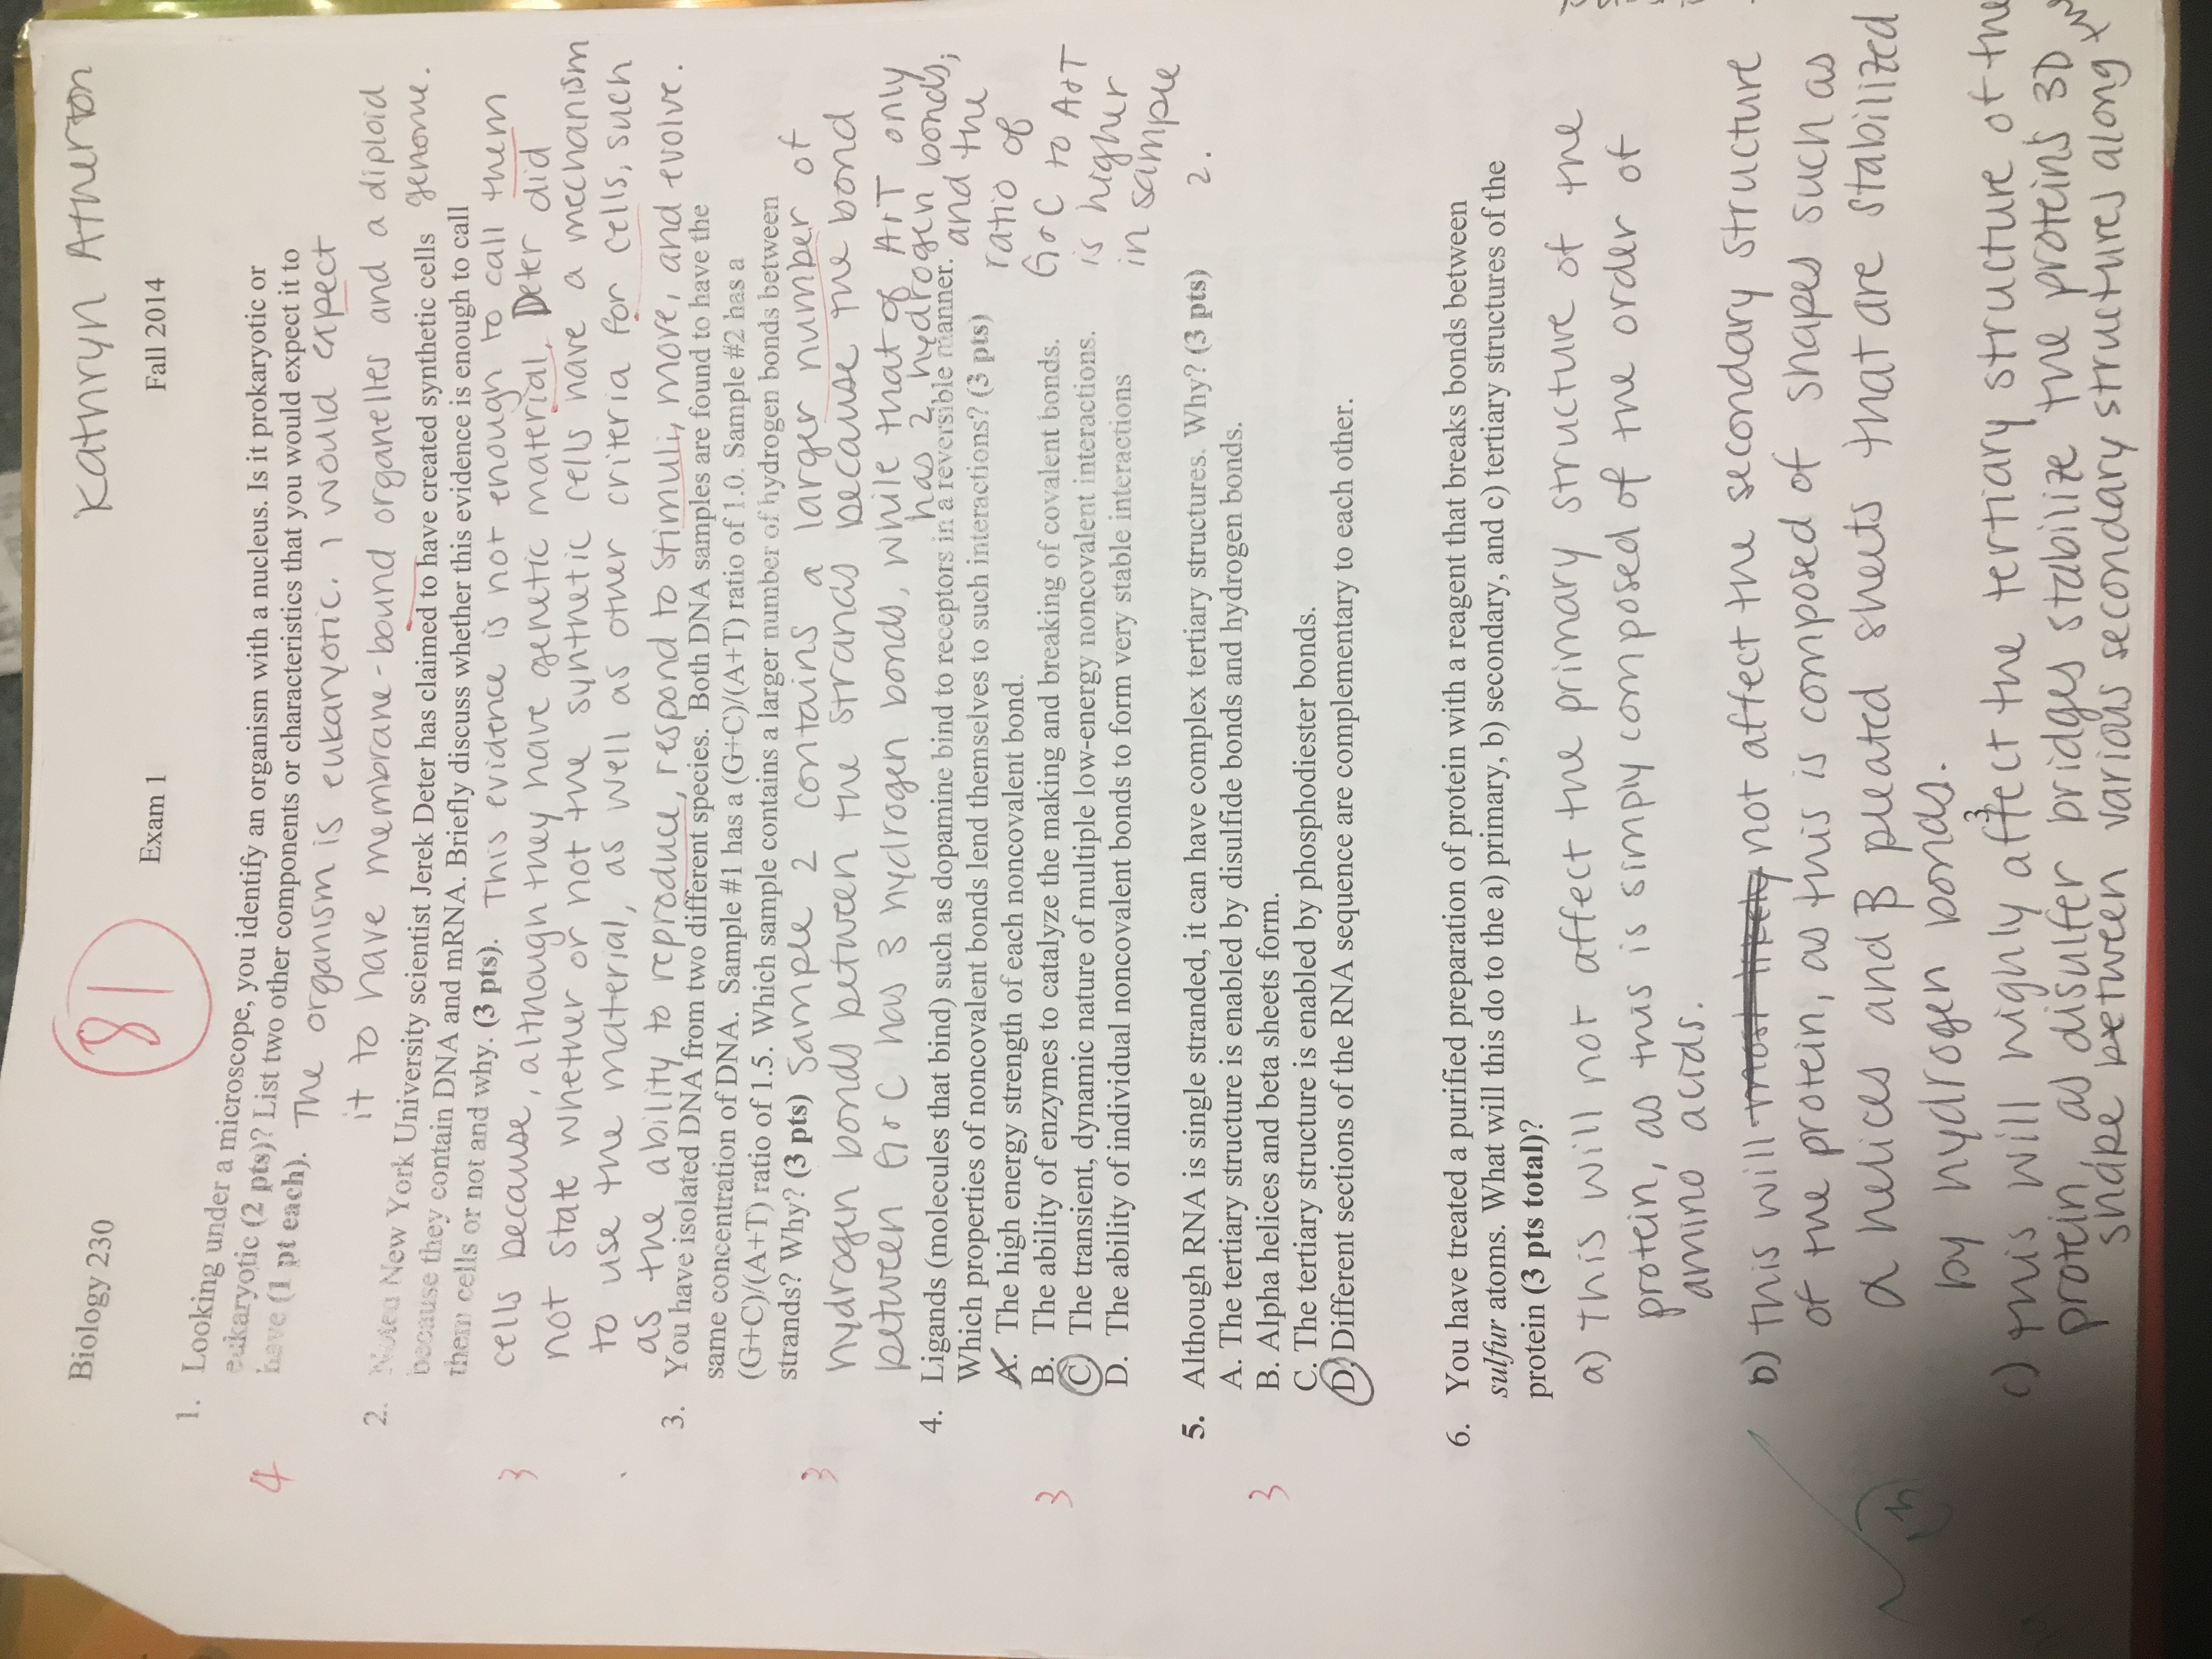 Biology 230
81
Kathryn Atherton
Exam 1
Fall 2014
1. Looking under a microscope, you identify an organism with a nucleus. Is it prokaryotic or
eukaryotic (2 pts)? List two other components or characteristics that you would expect it to
have (1 pt each). The organism is eukaryotic. I would expect
it to have membrane-bound organelles and a diploid
genome.
4
2. Noted New York University scientist Jerek Deter has claimed to have created synthetic cells
because they contain DNA and mRNA. Briefly discuss whether this evidence is enough to call
them cells or not and why. (3 pts). This evidence is not enough to call them
cells because, although they have genetic material, Deter did
3
not state whether or not the synthetic cells have a mechanism
to use the material, as well as other criteria for cells, such
as the ability to reproduce, respond to stimuli, more, and evolve.
3. You have isolated DNA from two different species. Both DNA samples are found to have the
same concentration of DNA. Sample #1 has a (G+C)/(A+T) ratio of 1.0. Sample #2 has a
(G+C)/(A+T) ratio of 1.5. Which sample contains a larger number of hydrogen bonds between
strands? Why? (3 pts) Sample 2 contains a larger number of
3
hydrogen bonds between the strands because the bond
between G & C has 3 hydrogen bonds, while that of A & T only
has 2 hydrogen bonds,
and the
ratio of
G & C to A & T
is higher
in sample
2.
4. Ligands (molecules that bind) such as dopamine bind to receptors in a reversible manner.
Which properties of noncovalent bonds lend themselves to such interactions? (3 pts)
A. The high energy strength of each noncovalent bond.
B. The ability of enzymes to catalyze the making and breaking of covalent bonds.
3
C. The transient, dynamic nature of multiple low-energy noncovalent interactions.
D. The ability of individual noncovalent bonds to form very stable interactions
5. Although RNA is single stranded, it can have complex tertiary structures. Why? (3 pts)
A. The tertiary structure is enabled by disulfide bonds and hydrogen bonds.
3
B. Alpha helices and beta sheets form.
C. The tertiary structure is enabled by phosphodiester bonds.
D. Different sections of the RNA sequence are complementary to each other.
6. You have treated a purified preparation of protein with a reagent that breaks bonds between
sulfur atoms. What will this do to the a) primary, b) secondary, and c) tertiary structures of the
protein (3 pts total)?
a) this will not affect the primary structure of the
protein, as this is simply composed of the order of
amino acids.
b) this will most likely not affect the secondary structure
of the protein, as this is composed of shapes such as
α helices and β pleated sheets that are stabilized
3
by hydrogen bonds.
3
c) this will highly affect the tertiary structure of the
protein, as disulfer bridges stabilize the proteins 3D
shape between various secondary structures along the